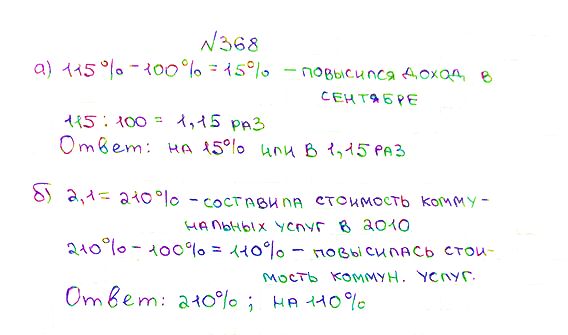 №368
а) 115% - 100% = 15% - повысился доход в
сентябре
115 : 100 = 1,15 раз
Ответ: на 15% или в 1,15 раз
б) 2,1 = 210% - составила стоимость комму-
нальных услуг в 2010
210% - 100% = 110% - повысилась стои-
мость коммун. услуг.
Ответ: 210% ; на 110%